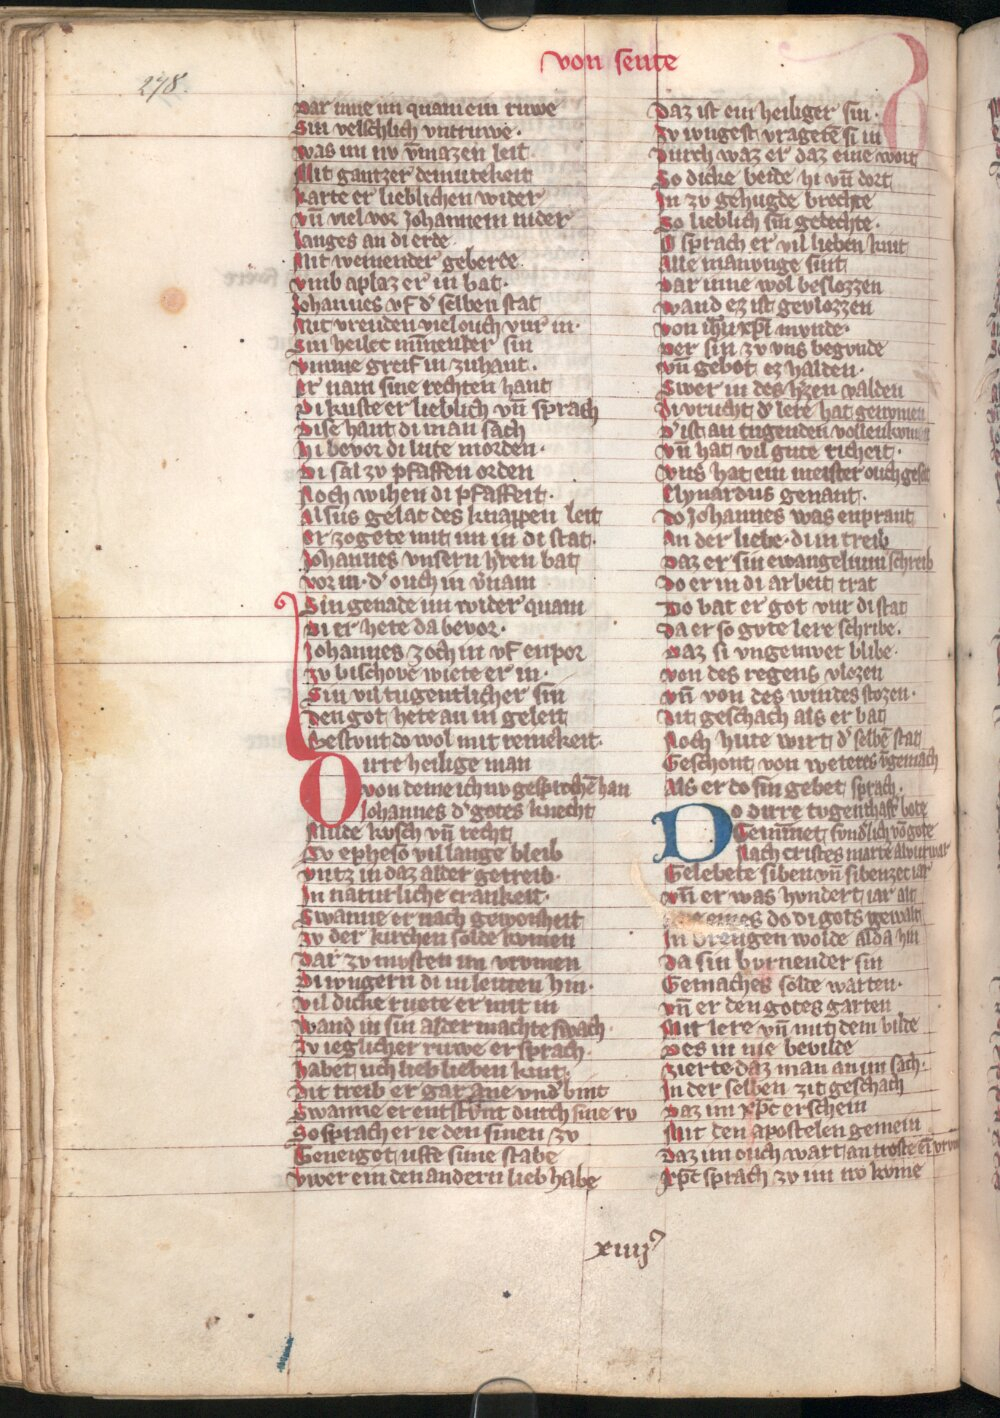 von sente
278
Dar inne im quam ein ruwe
Sin velschlich vntruwe·
Was im nv vmazen leit
Mit gantzer demutekeit
Karte er lieblichen wider
Vn̄ viel vor Johannem nider
Langes an di erde
Mit weinender geberde
Vmb aplaz er in bat·
Johannes vf d' selben stat
Mit vreuden viel ouch vur in·
Sin heilec minnender sin
Vmme greif in zuhant·
Er nam sine rechten hant
Di kuste er lieblich vn̄ sprach
Dise hant di man sach
Hi bevor di lute morden·
Di sal zv pfaffen orden
Noch wihen di pfaffeit·
Alsus gelac des knappen leit
Er zogete mit im in di stat·
Johannes vnsern h̄ren bat
Vor in· d' ouch in v̄nam
Sin genade im wider quam
Di er hete da bevor·
Johannes zoch in vf enpor
Zv bischove wiete er in·
Sin vil tugentlicher sin
Den got hete an in geleit
Gestunt do wol mit reinekeit·
Dirre heilige man
Von deme ich nv gesproch̄e han
Johannes d' gotes knecht
Milde kvsch vn̄ recht
Zv epheso vil lange bleib
Vntz in daz alder getreib·
In naturliche crankeit·
Swanne er nach gewonheit
Zv der kirchen solde kvmen
Dar zv mvsten im vromen
Di ivngern di in leitten hin·
Vil dicke ruote er mit in
Wand in sin alder machte swach·
Zv ieglicher ruwe er sprach·
Habet uch lieb lieben kint·
Dit treib er gar ane vnd'bint
Swanne er entstvnt durch sine rv
So sprach er ie den sinen zv
Geneiget uffe sime stabe
Vwer ein den andern lieb habe
Daz ist ein heiliger sin·
Zv iungest vragetē si in
Durch waz er daz eine wort
So dicke beide hi vn̄ dort
In zv gehugde brechte
So lieblich sin gedechte·
O sprach er vil lieben kint
Alle manunge sint
Dar inne wol beslozzen
Wand ez ist gevlozzen
Von ihū xp̄i mvnde·
Der sin zv vns begvnde
Vn̄ gebot ez halden·
Swer in des h̄zen valden
Di vrucht d' lere hat genvmen
D' ist an tugenden vollenkomen
Vn̄ hat vil gute richeit·
Vns hat ein meister ouch geseit
Elynardus genant·
Do Johannes was enprant
An der liebe· di in treib
Daz er sin ewangelium schreib
Do er in di arbeit trat
Do bat er got vur di stat
Da er so gvte lere schribe·
Daz si vngenivet blibe·
Von des regens vlozen
Vn̄ von des windes stozen·
Dit geschach als er bat
Noch hute wirt d' selbē stat
Geschont von weteres v̄gemach
Als er do sin gebet sprach·
Do dirre tvgenthaft' bote
Gemīnet svnd'lich vō gote
Nach cristes marter alvurwar
Gelebete siben vn̄ sibenzec iar
Vn̄ er was hvndert iar alt
do di gots gewalt
In brengen wolde alda hin
Da sin bvrnender sin
Gemaches solde warten·
Vn̄ er den gotes garten
Mit lere vn̄ mit dem bilde
Des in nie bevilde
Zierte daz man an im sach·
In der selben zit geschach
Daz im xp̄c erschein
Mit den apostelen gemein
Daz im ouch wart an troste
xp̄c sprach zv im nv kvme
xiiij